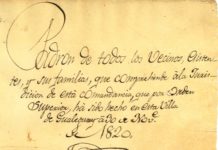 Padrón de todos los Vecinos, existen
tes, y sus familias, que comprehende à la Juris
dicion de esta Comandancia, que por Orden
Superior, há sido hecho en esta Villa
de Gualeguay à 30 de Nov.e
de 1820.